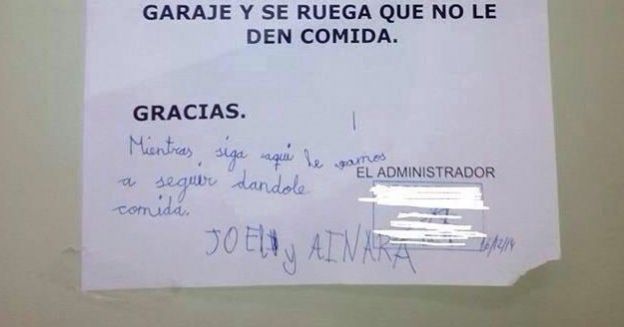 GARAJE Y SE RUEGA QUE NO LE
DEN COMIDA.
GRACIAS.
Mientras siga aqui le vamos
a seguir dandole
comida.
EL ADMINISTRADOR
JOEL y AINARA